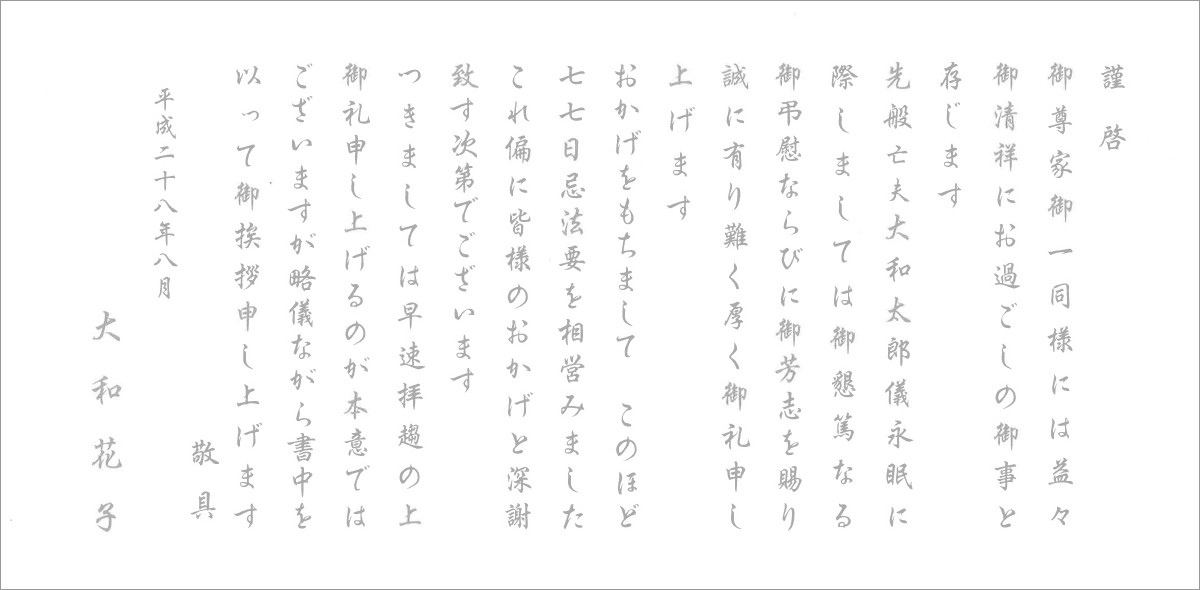 謹啓
御尊家御一同様には益々
御清祥にお過ごしの御事と
存じます
先般亡夫大和太郎儀永眠に
際しましては御懇篤なる
御弔慰ならびに御芳志を賜り
誠に有り難く厚く御礼申し
上げます
おかげをもちまして　このほど
七七日忌法要を相営みました
これ偏に皆様のおかげと深謝
致す次第でございます
つきましては早速拝趨の上
御礼申し上げるのが本意では
ございますが略儀ながら書中を
以って御挨拶申し上げます
敬具
平成二十八年八月
大和花子